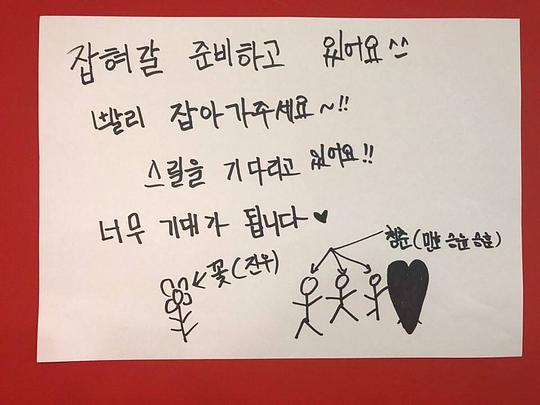 잡혀갈 준비하고 있어요^^
빨리 잡아가주세요~!!
스릴을 기다리고 있어요!!
너무 기대가 됩니다♥
꽃(진우)
청춘(민호 승윤 승훈)